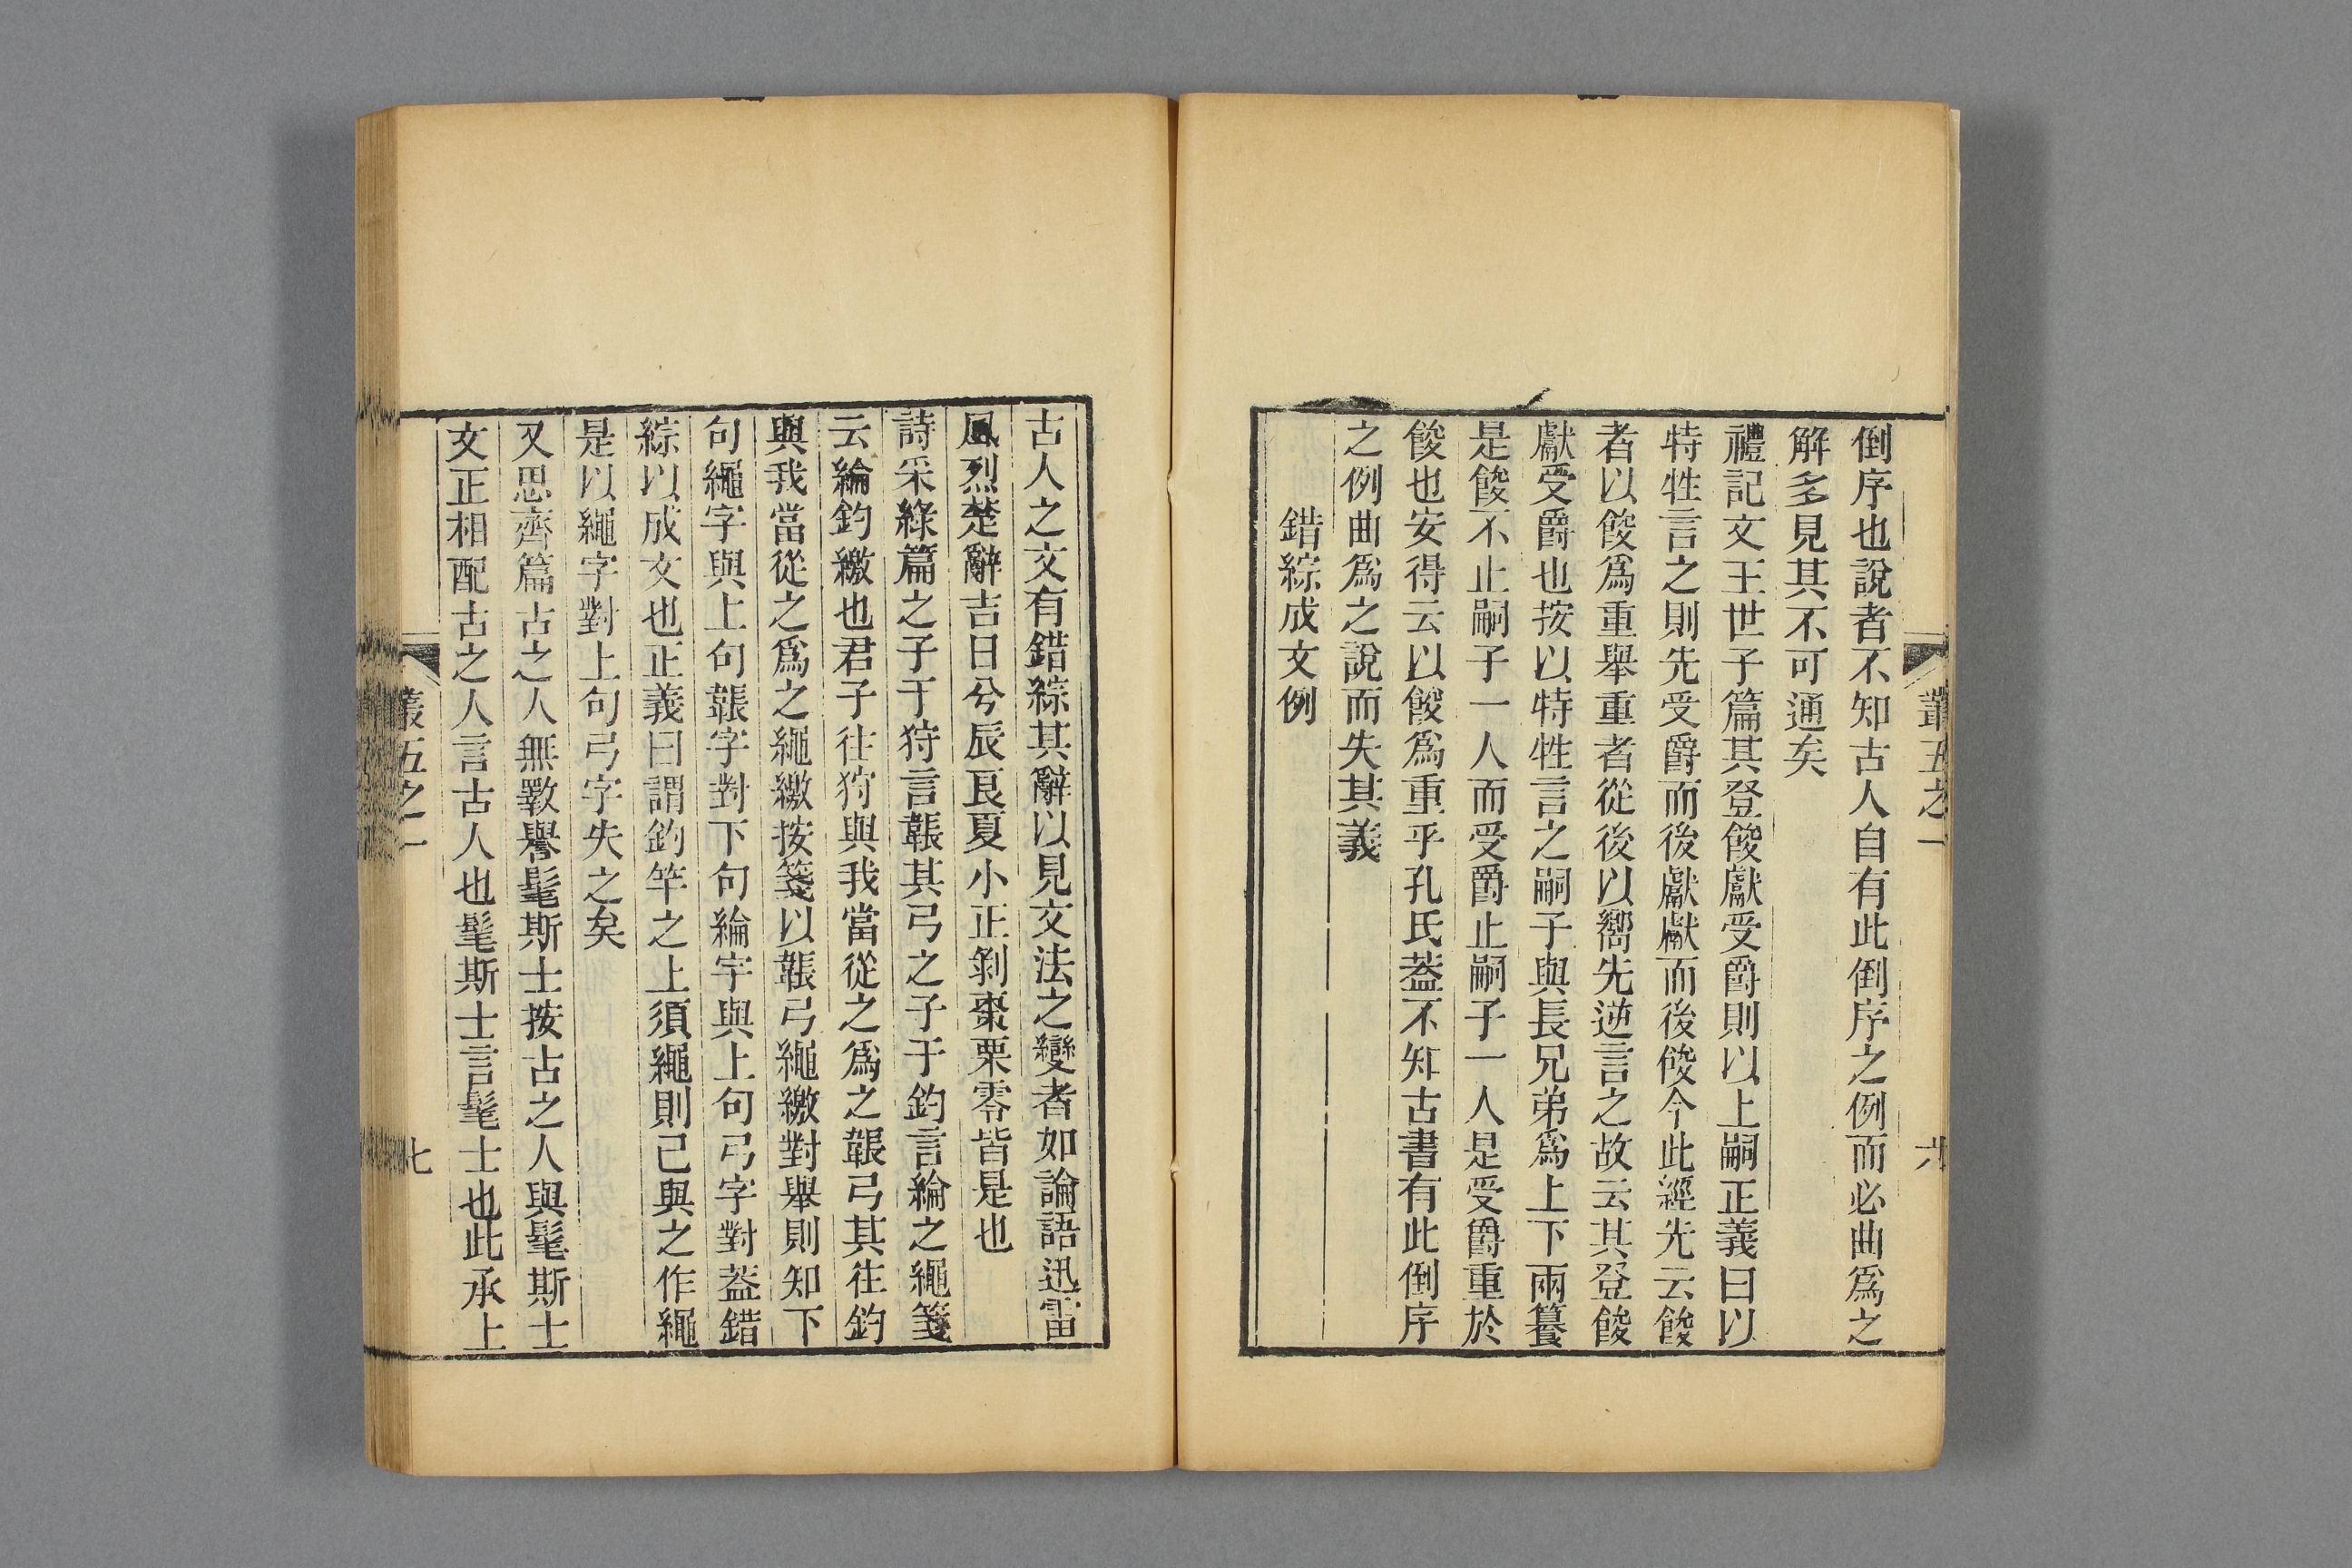 倒序也說者不知古人自有此倒序之例而必曲爲之
解多見其不可通矣
禮記文王世子篇其登餕獻受爵則以上嗣正義曰以
特牲言之則先受爵而後獻獻而後餕今此經先云餕
者以餕爲重舉重者從後以嚮先逆言之故云其登餕
獻受爵也按以特牲言之嗣子與長兄弟爲上下兩籑
是餕不止嗣子一人而受爵止嗣子一人是受爵重於
餕也安得云以餕爲重乎孔氏葢不知古書有此倒序
之例曲爲之說而失其義
錯綜成文例
叢五之一
六
古人之文有錯綜其辭以見文法之變者如論語迅雷
風烈楚辭吉日兮辰良夏小正剝棗栗零皆是也
詩采綠篇之子于狩言韔其弓之子于釣言綸之繩箋
云綸釣繳也君子往狩與我當從之爲之韔弓其往釣
與我當從之爲之繩繳按箋以韔弓繩繳對舉則知下
句繩字與上句韔字對下句綸字與上句弓字對葢錯
綜以成文也正義曰謂釣竿之上須繩則己與之作繩
是以繩字對上句弓字失之矣
又思齊篇古之人無斁譽髦斯士按古之人與髦斯士
文正相配古之人言古人也髦斯士言髦士也此承上
叢五之一
七